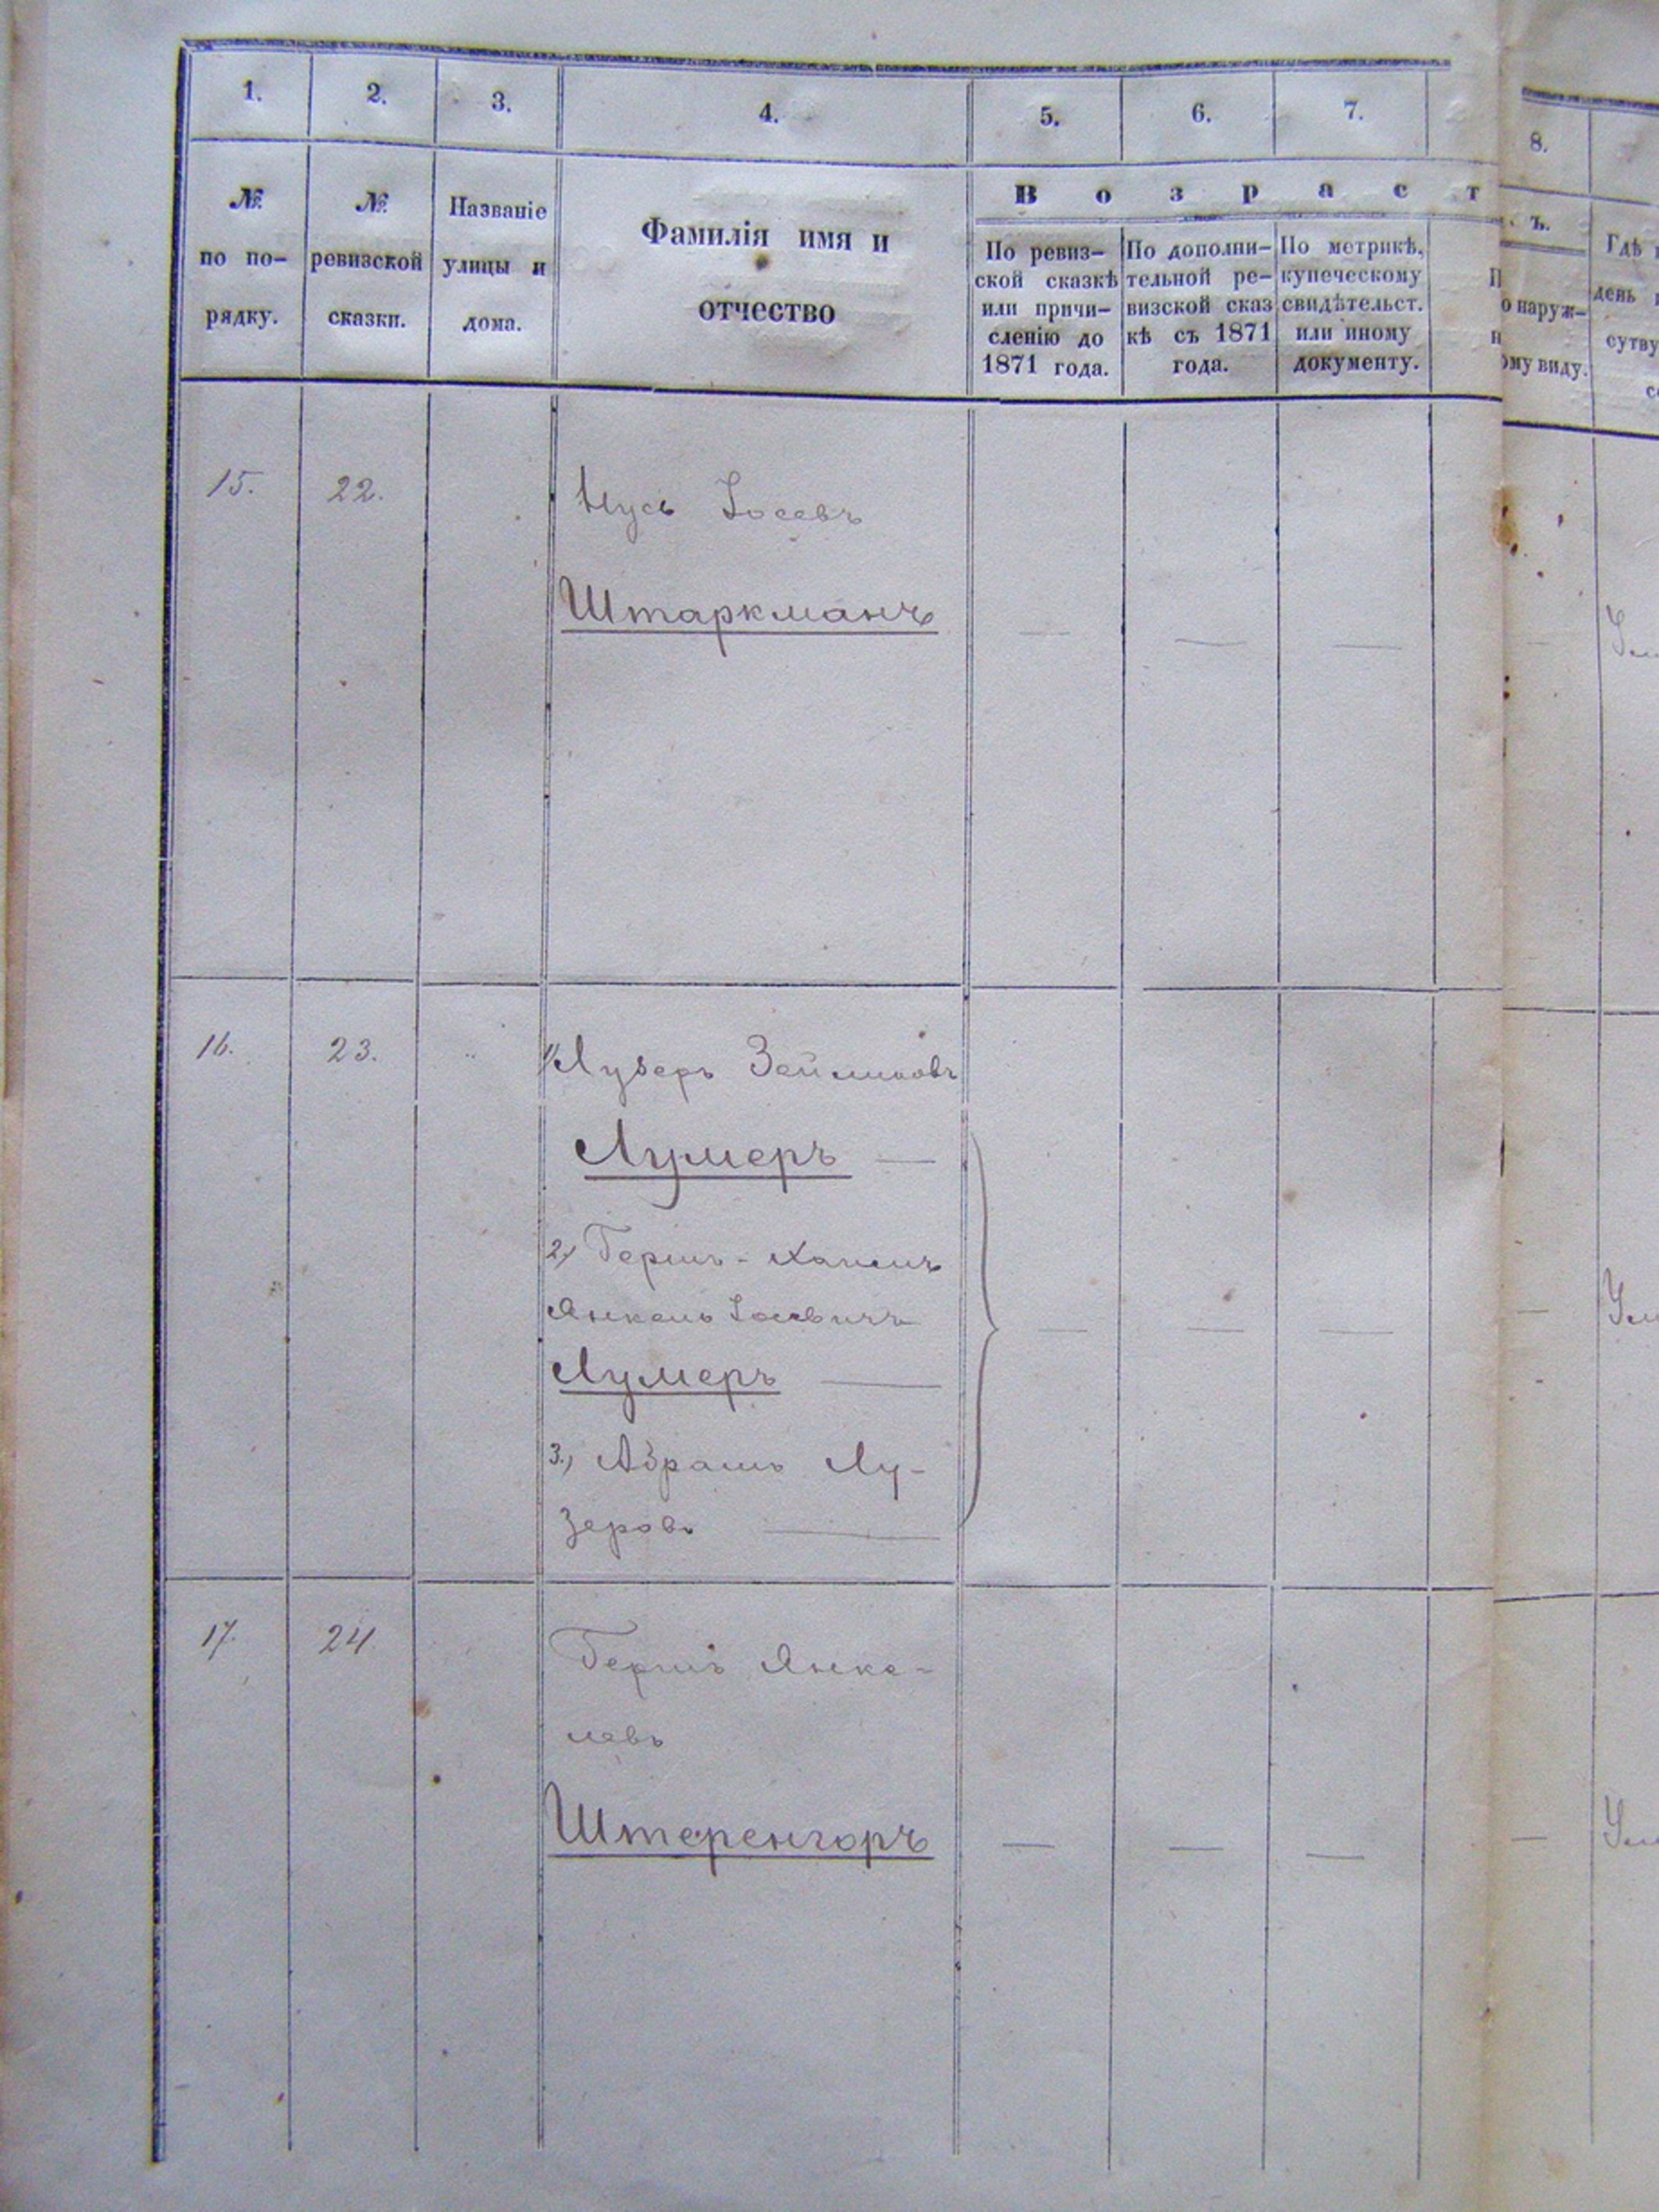 1. 2. 3. 4. 5. 6. 7.
8.
№
по по-
рядку.
№
ревизской
сказки.
Названіе
улицы и
дома.
Фамилія имя и
отчество
Возраст
ъ.
По ревиз-
ской сказкѣ
или причи-
сленію до
1871 года.
По дополни-
тельной ре-
визской сказ
кѣ съ 1871
года.
По метрикѣ,
купеческому
свидѣтельст.
или иному
документу.
о наруж-
ому виду.
Гдѣ
день
сутву
15. 22. Іосевъ
Штаркманъ
— — —
16. 23. 1) Лузеръ Зейликовъ
Лумеръ —
2) Герш-Хаимъ
Янкель Іосевичъ
Лумеръ —
— — —
3.) Абрамъ Лу-
зеровъ —
17. 24 Гершъ Янке-
левъ
Штеренгоръ — — —